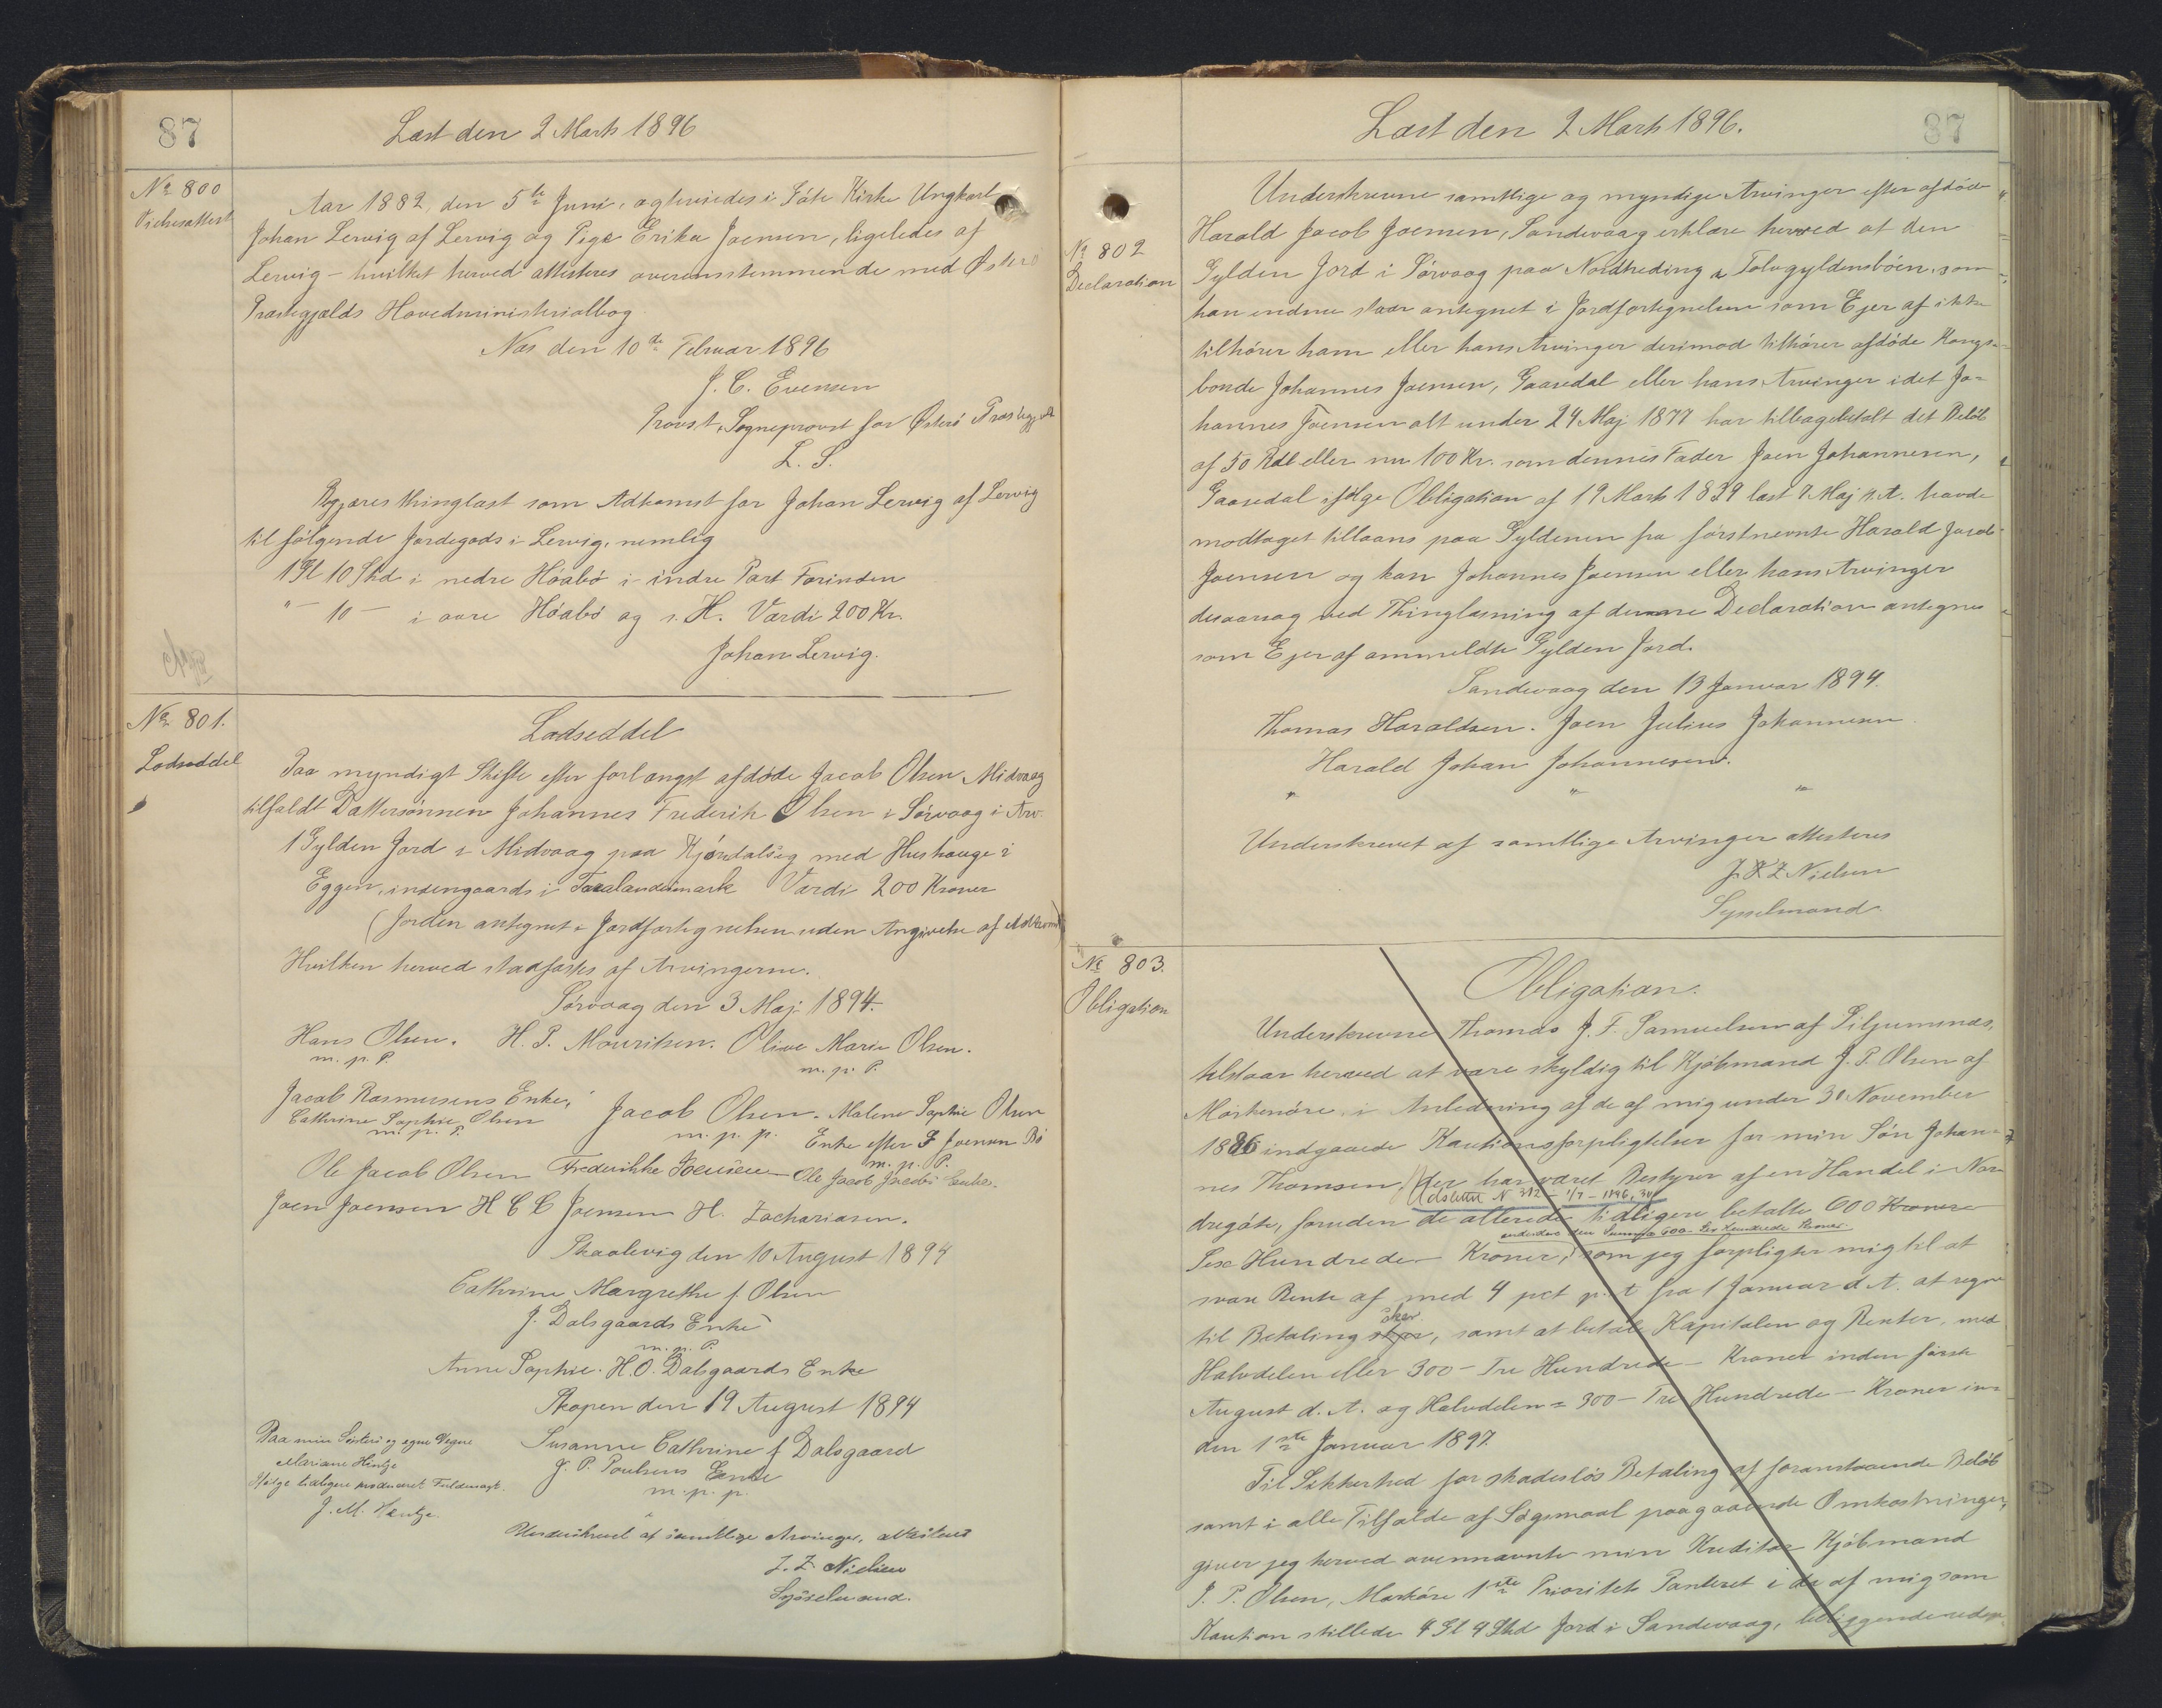 87
Læst den 2 Marts 1896
No 800
Vielsesattest
Aar 1882, den 5te Juni, ægteviedes i Fåte Kirke Ungkarl
Johan Lervig af Lervig og Pige Erika Joensen, ligeledes af
Lervig – hvilket herved attesteres overensstemmende med Østerø
Præstegjælds Hovedministerialbog
Næs den 10de Februar 1896
J. C. Evensen
Provst, Sogneprovst for Østerø Præstegjæld
L. S.
Begjæres thinglæst som Adkomst for Johan Lervig af Lervig
til følgende Jordegods i Lervig, nemlig
1 Gl 10 Skd i nedre Høabø i indre Part Forinden
" – 10 – i øvre Høabø og s. H. Værdi 200 Kr.
Johan Lervig.
No 801.
Lodseddel
Lodseddel
Paa myndigt Skifte efter forlængst afdøde Jacob Olsen Midvaag
tilfaldt Dattersønnen Johannes Frederik Olsen i Sørvaag i Arv
1 Gylden Jord i Midvaag paa Kjørdalsig med Hushauge i
Eggen, indengaards i Taralandsmark Værdi 200 Kroner
(Jorden antegnet i Jordfortegnelsen uden Angivelse af Adkomst)
Hvilken herved stadfæstes af Arvingerne.
Sørvaag den 3 Maj 1894.
Hans Olsen. H. P. Mouritsen. Olive Marie Olsen.
m. p. P. m. p. P.
Jacob Rasmussens Enke,
Cathrine Sophie Olsen Jacob Olsen. Malene Sophie Olsen
m. p. P. m. p. p. Enke efter J Joensen Bø
m. p. P.
Ole Jacob Olsen Frederikke Joensen – Ole Jacob Jacobs Enke.
Joen Joensen H C C Joensen H. Zachariasen.
Skaalevig den 10 August 1894
Cathrine Margrethe f. Olsen
J. Dalsgaards Enke
m. p. P.
Anne Sophie. H. O. Dalsgaards Enke
Skopen den 19 August 1894
Paa min Søsters og egne Vegne
Mariane Hentze
Ifølge tidligere produceret Fuldmagt.
J. M. Hentze.
Susanne Cathrine f Dalsgaard
J. P. Poulsens Enke
m. p. p.
Underskrevet af samtlige Arvinger, attesteres
J. Z. Nielsen
Sysselmand.
Læst den 2 Marts 1896.
87
No 802
Declaration
Underskrevne samtlige og myndige Arvinger efter afdøde
Harald Jacob Joensen, Sandevaag erklære herved at den
Gylden Jord i Sørvaag paa Nordheding a Tolvgyldensbøen, som
han endnu staar antegnet i Jordfortegnelsen som Ejer af ikke
tilhører ham eller hans Arvinger derimod tilhører afdøde Kongs-
bonde Johannes Joensen, Gaasedal eller hans Arvinger idet Jo-
hannes Joensen alt under 24 Maj 1877 har tilbagebetalt det Beløb
af 50 Rdl eller nu 100 Kr. som dennes Fader Joen Johannesen,
Gaasedal ifølge Obligation af 19 Marts 1839 læst 7 Maj s. A. havde
modtaget tillaans paa Gyldenen fra førstnævnte Harald Jacob
Joensen og kan Johannes Joensen eller hans Arvinger
desaarsag ved Thinglæsning af denne Declaration antegnes
som Ejer af anmeldte Gylden Jord.
Sandevaag den 13 Januar 1894.
Thomas Haraldsen. Joen Julius Johannesen
Harald Johan Johannesen.
" " "
Underskrevet af samtlige Arvinger attesteres
J. Z Nielsen
Sysselmand.
No 803.
Obligation
Obligation.
Underskrevne Thomas J. F. Samuelsen af Siljumnæs,
tilstaar herved at være skyldig til Kjøbmand J. P. Olsen af
Morkenøre, i Anledning af de af mig under 30 November
1886 indgaaede Kautionsforpligtelser for min Søn Johan-
nes Thomsen, der har været Bestyrer af en Handel i Nor-
Udslettet N 312 – 1/7 – 1896, 30
dregøte, foruden de allerede tidligere betalte 600 Kroner
endvidere den Summa 600 Sex Hundrede Kroner
Sex Hundrede – Kroner, som jeg forpligter mig til at
svare Rente af med 4 pct p. t fra 1 Januar d. A. at regne
til Betaling sker, samt at betale Kapitalen og Renter, med
Halvdelen eller 300 – Tre Hundrede – Kroner inden første
August d. A. og Halvdelen = 300 – Tre Hundrede – Kroner in-
den 1ste Januar 1897.
Til Sikkerhed for skadesløs Betaling af foranstaaende Beløb
samt i alle Tilfælde af Søgsmaal paagaaende Omkostninger,
giver jeg herved ovennævnte min Kreditor Kjøbmand
J. P. Olsen, Morkøre 1ste Prioritets Panteret i de af mig som
Kaution stillede 4 Gl 9 Skd Jord i Sandevaag, beliggende